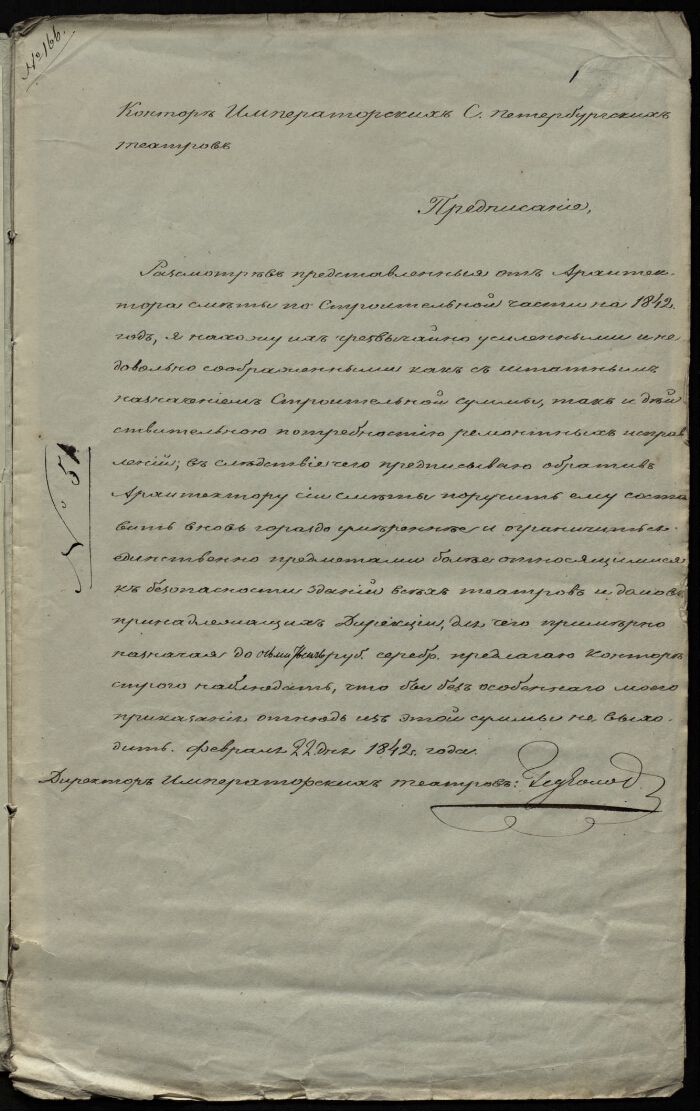 № 166.
1
Конторѣ Императорскихъ С. петербургскихъ
театровъ
Предписаніе,
Разсмотрѣвъ представленныя отъ Архитек-
тора смѣты по Строительной части на 1842
годъ, я нахожу ихъ чрезвычайно усиленными и не
довольно соображенными какъ съ штатнымъ
назначеніемъ Строительной суммы, такъ и дѣй
ствительною потребностію ремонтныхъ исправ
леній; въ слѣдствіе чего предписываю обративъ
Архитектору сіи смѣты поручить ему соста
вить вновь гораздо умѣреннѣе и ограничиться
единственно предметами болѣе относящимися
къ безопасности зданій всѣхъ театровъ и домовъ
принадлежащихъ Дирекціи, для чего примѣрно
назначая до руб. серебр. предлагаю Конторѣ
строго наблюдать, что бы безъ особеннаго моего
приказанія отнюдь изъ этой суммы не выхо-
дить. Февраля 22 дня 1842 г. года.
Директоръ Императорскихъ театровъ:
№ 51